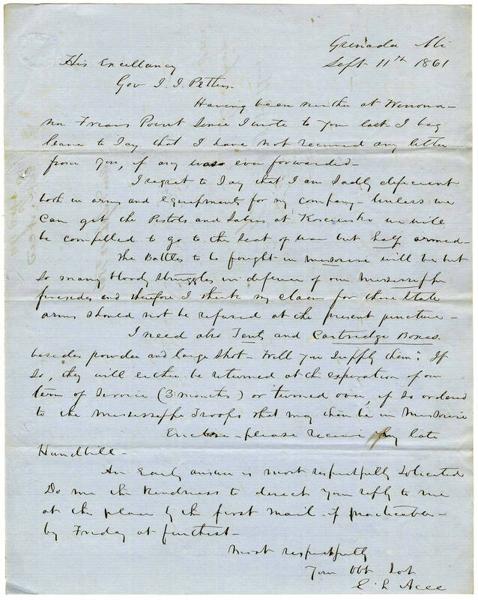 Grenada Mi
Sept 11th 1861
His Excellancy
Gov J. J. Pettus.
Having been neither at Winona
nor Friars Point since I wrote to you last I beg
leave to say that I have not received any letter
from you, if any was ever forwarded.
I regret to say that I am sadly deficient
both in arms and equipments for my company. Unless we
can get the Pistols and Sabres at Kosciusko we will
be compelled to go to the seat of war but half armed.
The battles to be fought in Missouri will be but
so many bloody struggles in defence of our Mississippi
firesides and therefore I think my claim for these State
arms should not be refused at the present juncture.
I need also Tents and Cartridge Boxes
besides powder and large shot. Will you supply them? If
so, they will either be returned at the expiration of our
term of service (3 months) or turned over, if so ordered
to the Mississippi troops that may then be in Missouri
Enclose please receive my late
Handbill.
An early answer is most respectfully solicited
Do me the kindness to direct your reply to me
at this place by the first mail if practicable
by Friday at furthest.
Most respectfully
Your Obt Svt